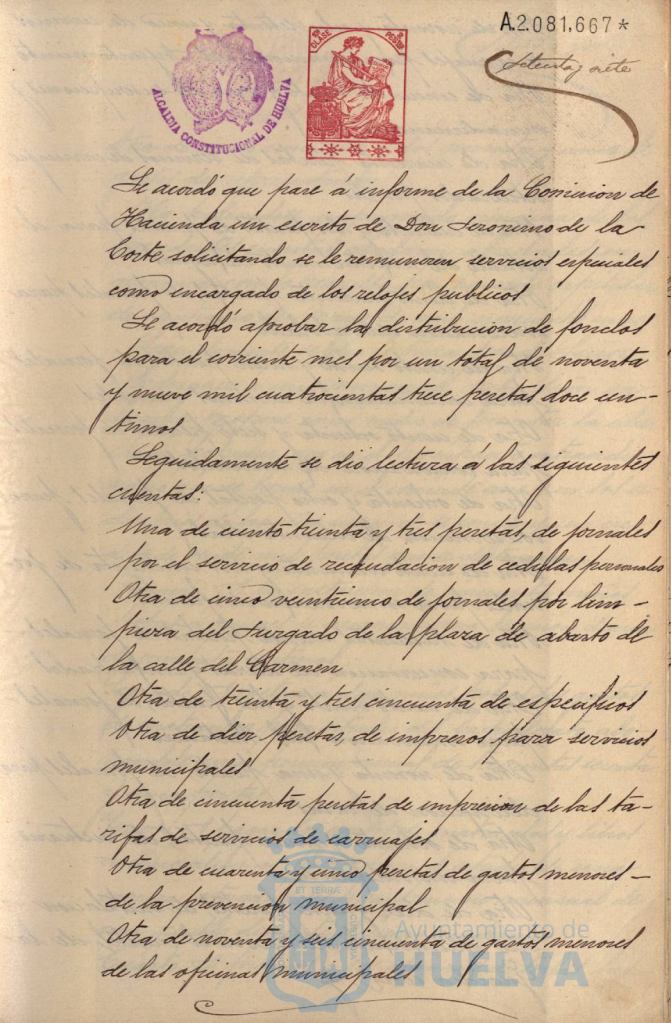 A.2.081.667*
Setenta y siete
ALCALDIA CONSTITUCIONAL DE HUELVA
CLASE
Se acordó que pase á informe de la Comision de
Hacienda un escrito de Don Jeronimo de la
Corte solicitando se le remuneren servicios especiales
como encargado de los relojes publicos
Se acordó aprobar la distribucion de fondos
para el corriente mes por un total de noventa
y nueve mil cuatrocientas trece pesetas doce cen-
timos
Seguidamente se dio lectura á las siguientes
cuentas:
Una de ciento treinta y tres pesetas, de jornales
por el servicio de recaudacion de cedulas personales
Otra de cinco veinticinco de jornales por lim-
pieza del Juzgado de la plaza de abasto de
la calle del Carmen
Otra de treinta y tres cincuenta de especificos
Otra de diez pesetas, de impresos para servicios
municipales
Otra de cincuenta pesetas de impresion de las ta-
rifas de servicios de carruajes
Otra de cuarenta y cinco pesetas de gastos menores
de la prevencion municipal
Otra de noventa y seis cincuenta de gastos menores
de las oficinas municipales
Ayuntamiento de
HUELVA